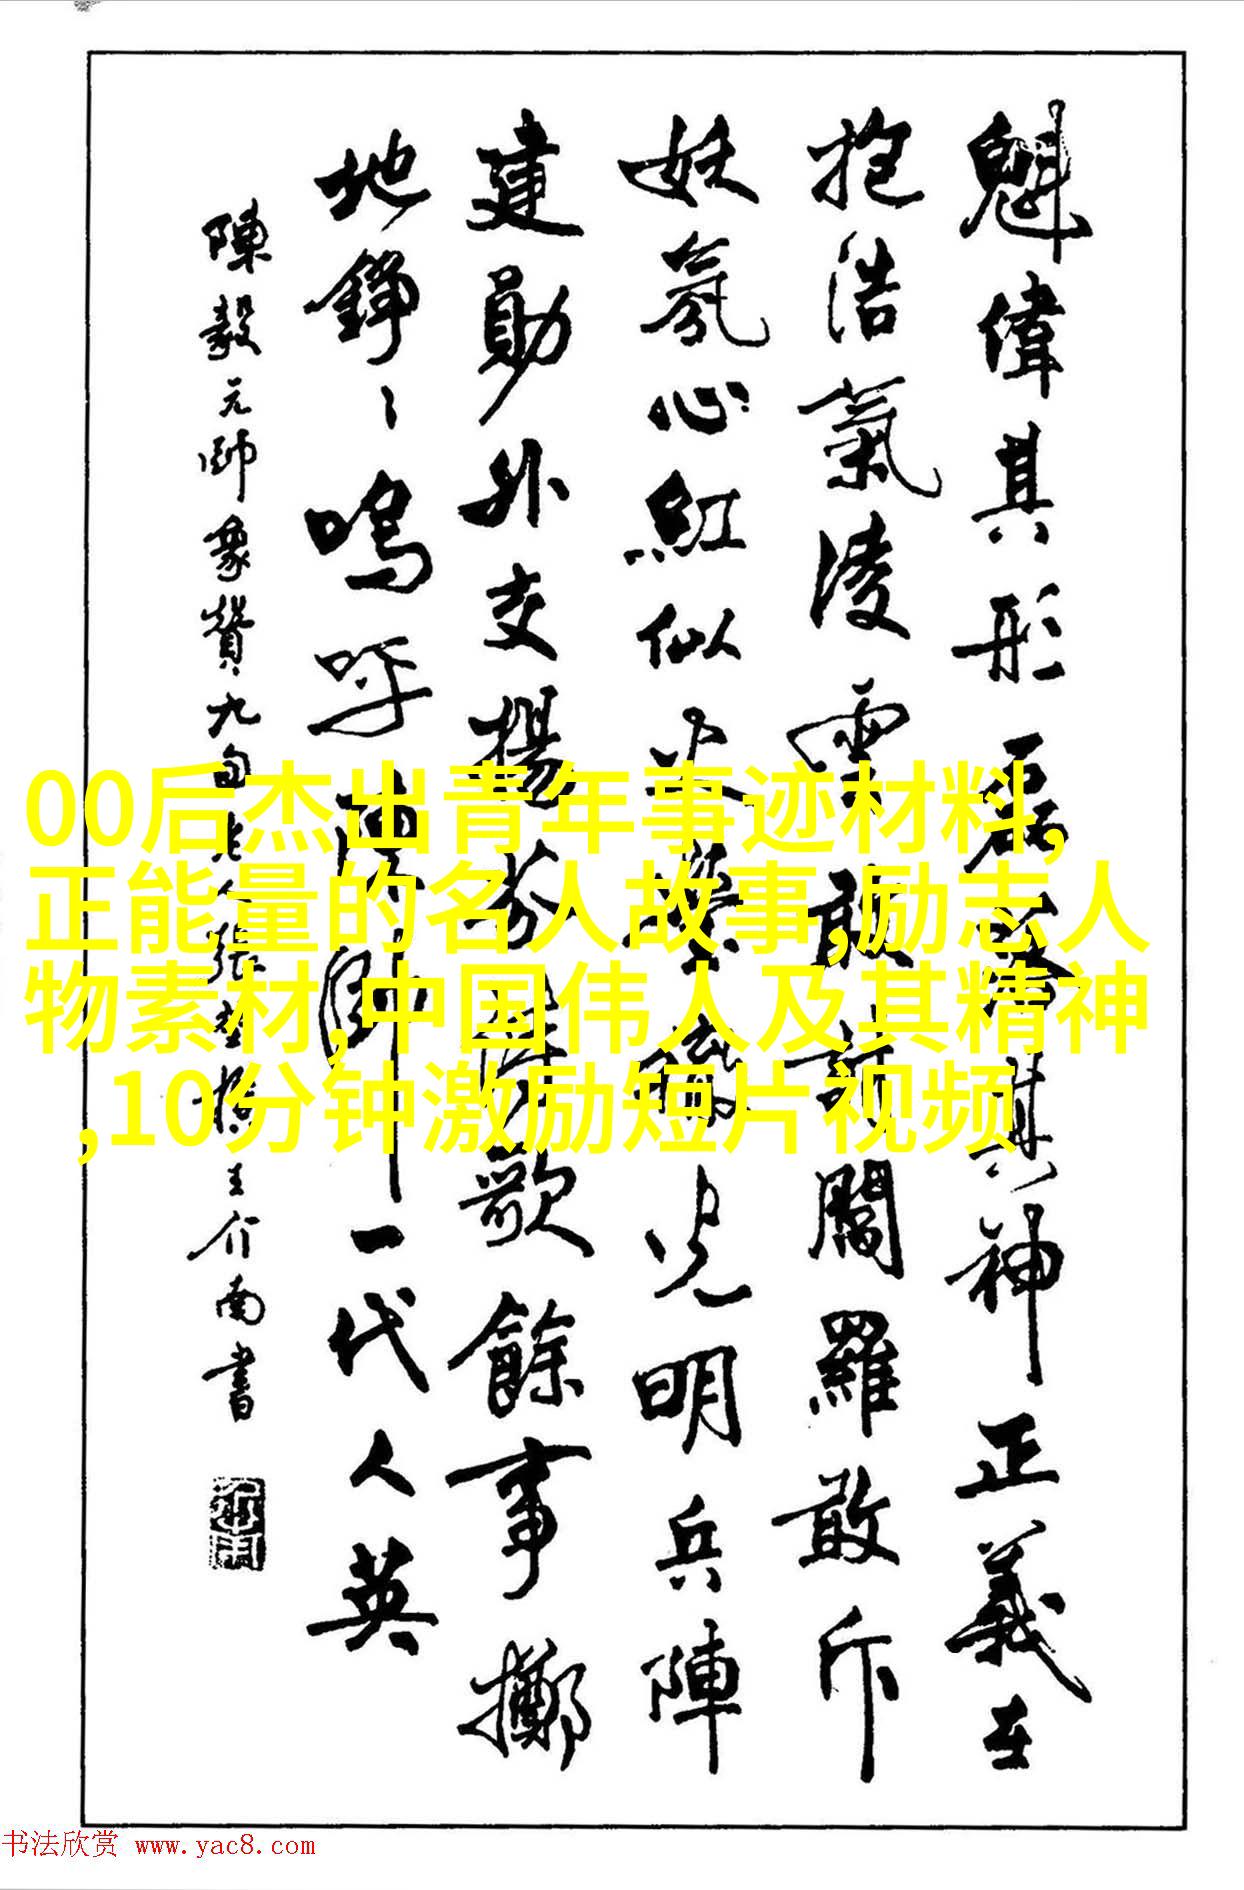 魁偉其形磊落其神正義在
抱浩氣淩雲敢討閻羅敢斥
妖氛心紅似火光明兵陣
建勛外交揚芬詩歌餘事擲
地錚〻嗚呼陳帥一代人英
陳毅元帥象贊九句老人張王介南書
00后杰出青年事迹材料,
正能量的名人故事,励志人
物素材,中国伟人及其精神
,10分钟激励短片视频
书法欣赏 www.yac8.com